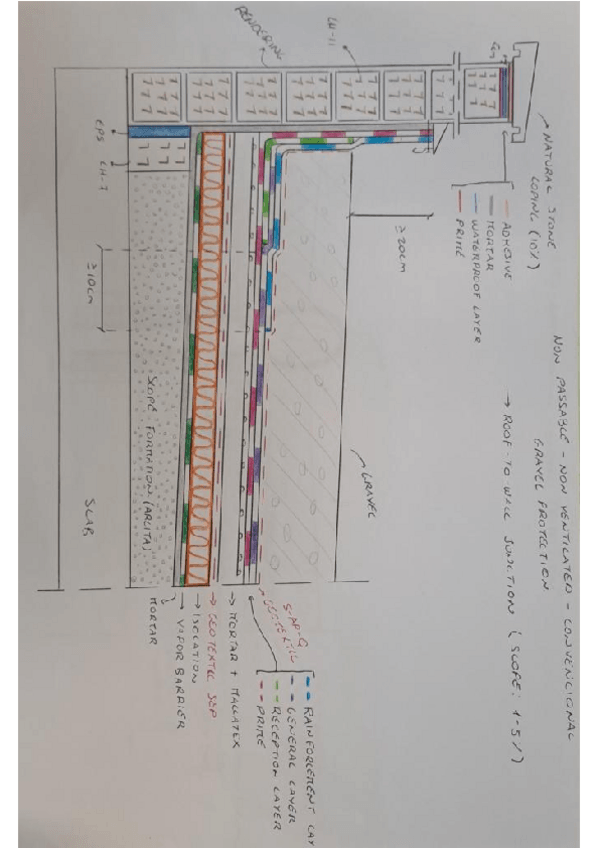 NON PASSABLE - NON VENTILATED - CONVENCIONAL
GRAVEL PROTECTION
→ ROOF-TO WALL JUNCTION (SLOPE: 1-5%)
NATURAL STONE
COPING (10%)
ADHESIVE
MORTAR
WATERPROOF LAYER
PRIME
LH-11
RENDERING
≥20cm
GRAVEL
EPS
LH-7
≥10cm
SLOPE FORMATION (ARLITA)
SLAB
RAINFORCEMENT LAY
GENERAL LAYER
RECEPTION LAYER
PRIME
GEOTEXTIL
→ MORTAR + MALLATEX
→ GEOTEXTIL SEP
→ ISOLATION
→ VAPOR BARRIER
MORTAR